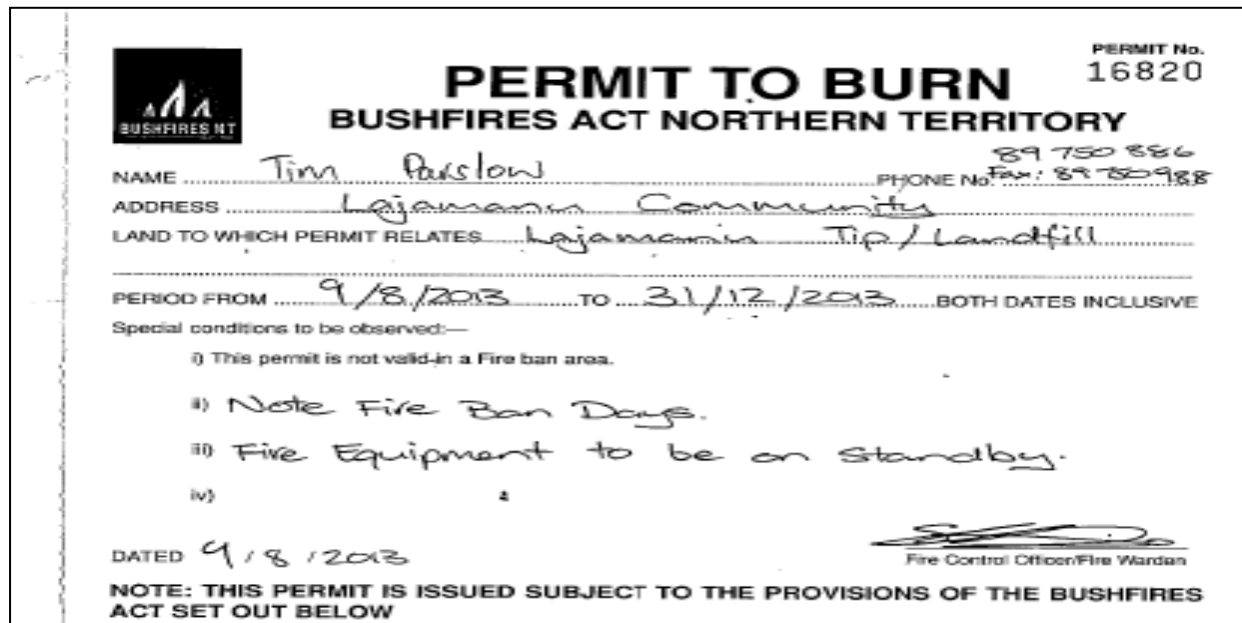 PERMIT No.
16820
PERMIT TO BURN
BUSHFIRES NT
BUSHFIRES ACT NORTHERN TERRITORY
89 750 886
NAME Tim Parslow PHONE No. Fax: 89 750 988
ADDRESS Lajamanu Community
LAND TO WHICH PERMIT RELATES Lajamanu Tip/Landfill
PERIOD FROM 9/8/2013 TO 31/12/2013 BOTH DATES INCLUSIVE
Special conditions to be observed:—
i) This permit is not valid in a Fire ban area.
ii) Note Fire Ban Days.
iii) Fire Equipment to be on Standby.
iv)
DATED 9/8/2013
Fire Control Officer/Fire Warden
NOTE: THIS PERMIT IS ISSUED SUBJECT TO THE PROVISIONS OF THE BUSHFIRES
ACT SET OUT BELOW